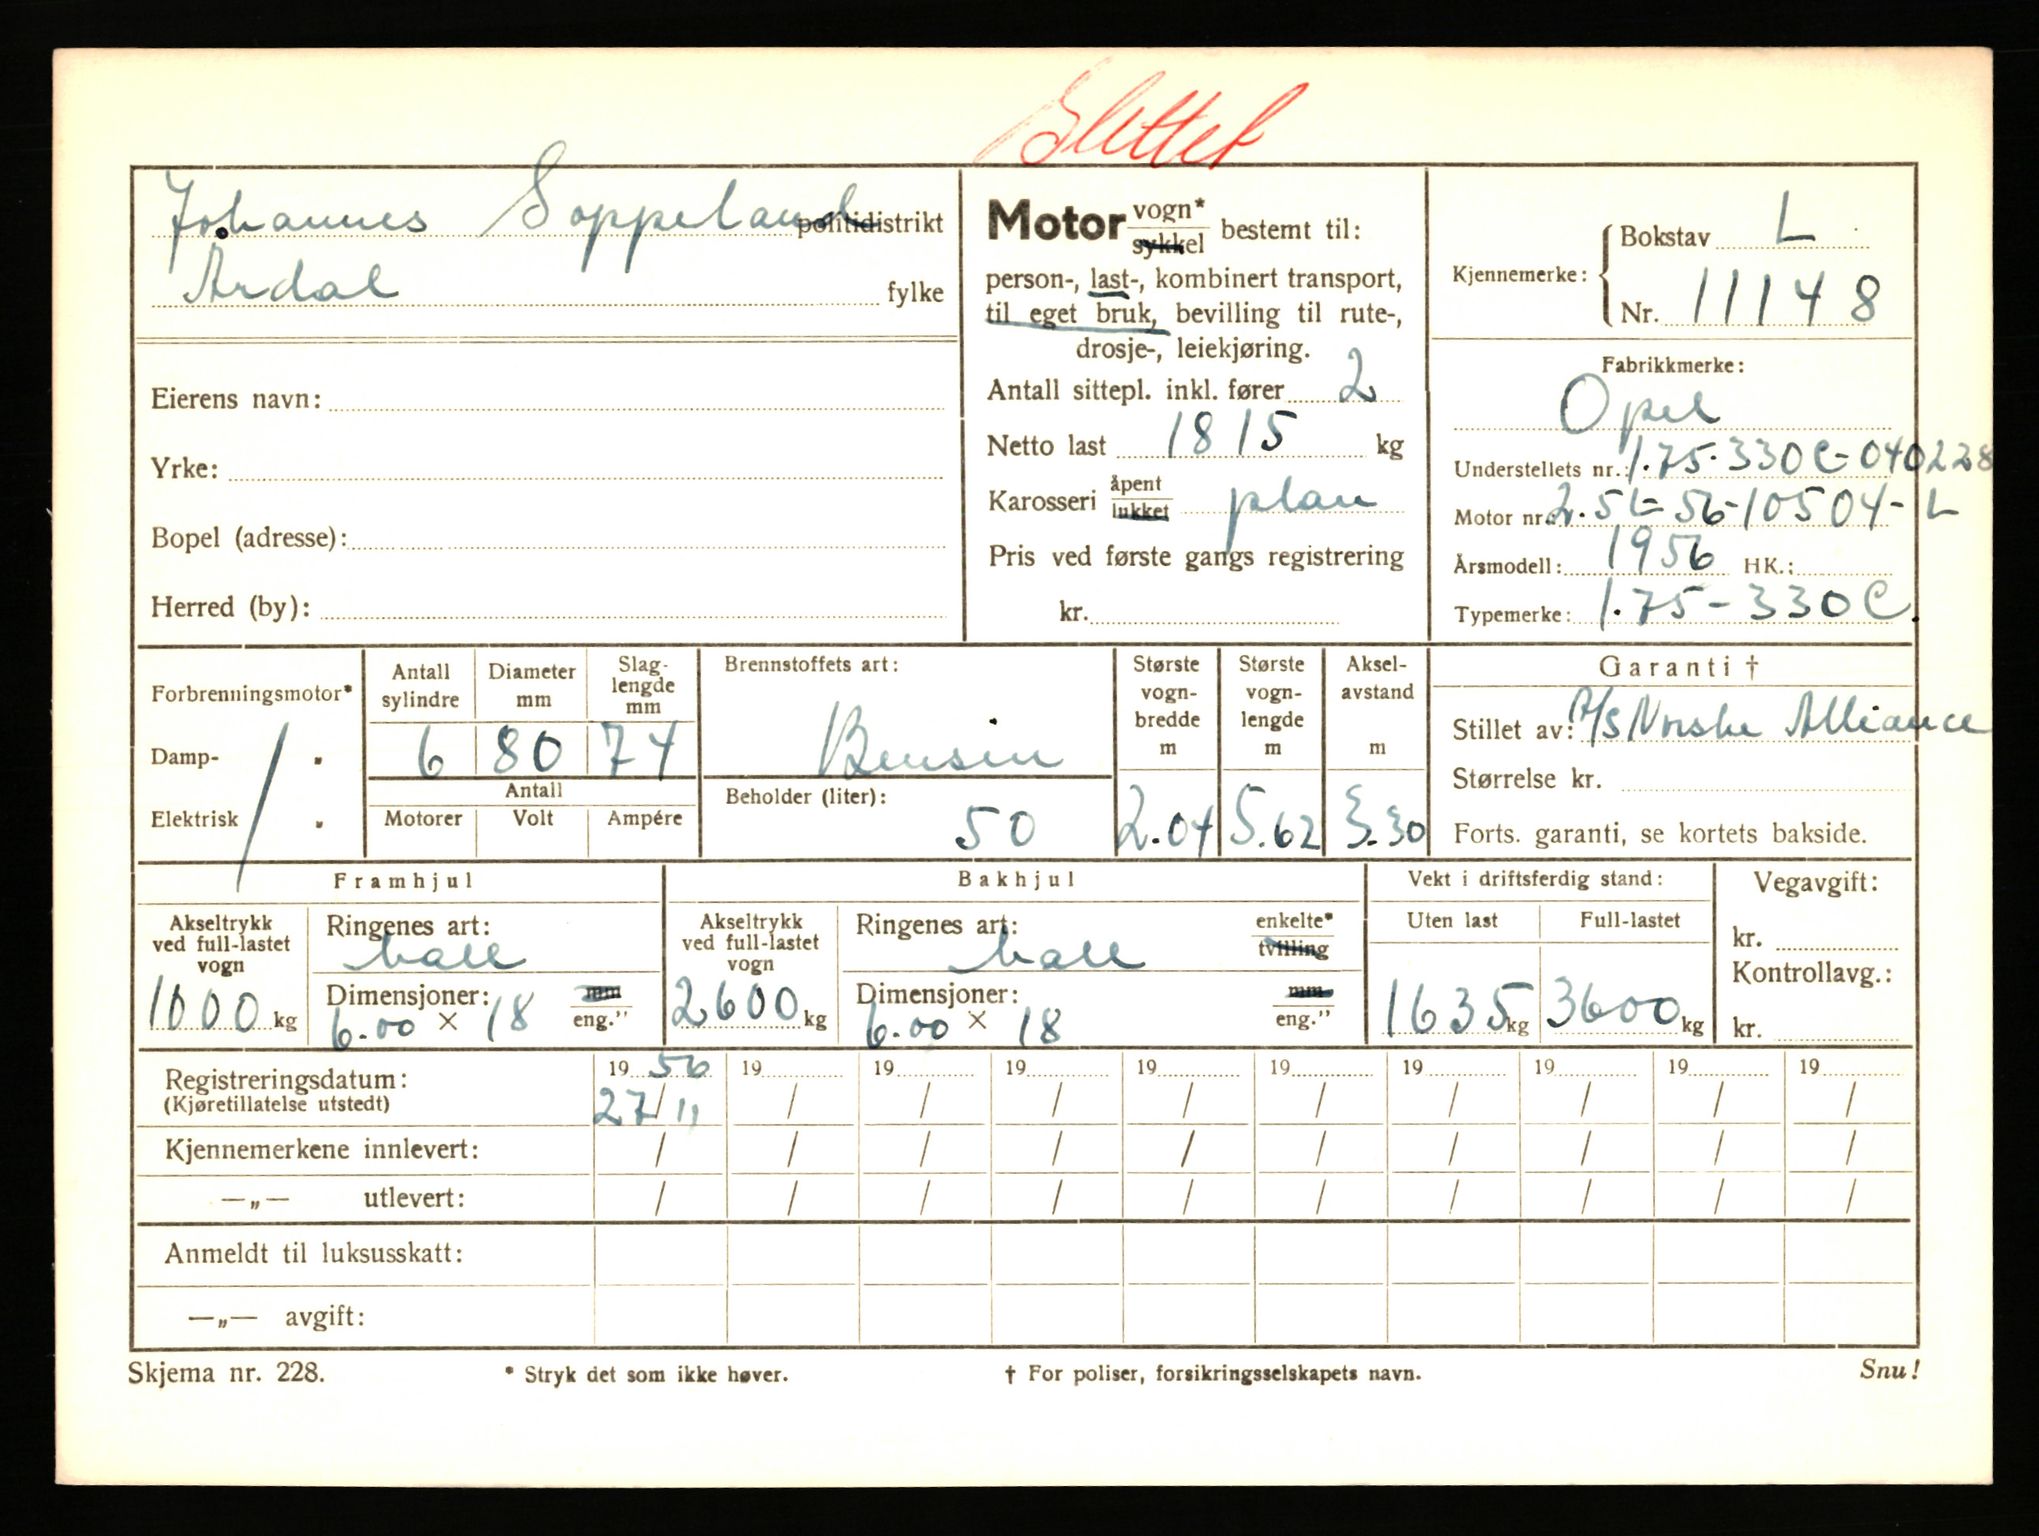 Slettet
Johannes Soppeland politidistrikt
Årdal fylke
Eierens navn:
Yrke:
Bopel (adresse):
Herred (by):
Motor vogn* sykkel bestemt til:
person-, last-, kombinert transport,
til eget bruk, bevilling til rute-,
drosje-, leiekjøring.
Antall sittepl. inkl. fører 2
Netto last 1815 kg
Karosseri åpent lukket plan
Pris ved første gangs registrering
kr.
Kjennemerke: Bokstav L
Nr. 11148
Fabrikkmerke:
Opel
Understellets nr.: 1.75-330C-040228
Motor nr. 2.5L-56-10504-L
Årsmodell: 1956 HK.:
Typemerke: 1.75-330C.
Forbrenningsmotor*
Damp- "
Elektrisk "
Antall sylindre Diameter mm Slag-lengde mm
6 80 74
Antall
Motorer Volt Ampére
Brennstoffets art:
Bensin
Beholder (liter):
50
Største vogn-bredde m
2.04
Største vogn-lengde m
5.62
Aksel-avstand m
3.30
Garanti †
Stillet av: A/S Norske Alliance
Størrelse kr.
Forts. garanti, se kortets bakside.
Framhjul
Akseltrykk ved full-lastet vogn
1000 kg
Ringenes art:
hall
Dimensjoner: mm
6.00 × 18 eng."
Bakhjul
Akseltrykk ved full-lastet vogn
2600 kg
Ringenes art: enkelte*
hall tvilling
Dimensjoner: mm
6.00 × 18 eng."
Vekt i driftsferdig stand:
Uten last Full-lastet
1635 kg 3600 kg
Vegavgift:
kr.
Kontrollavg.:
kr.
Registreringsdatum: 19 56 19 19 19 19 19 19 19 19 19
(Kjøretillatelse utstedt) 27/11 / / / / / / / / /
Kjennemerkene innlevert: / / / / / / / / / /
—„— utlevert: / / / / / / / / / /
Anmeldt til luksusskatt:
—„— avgift:
Skjema nr. 228. * Stryk det som ikke høver. † For poliser, forsikringsselskapets navn. Snu!